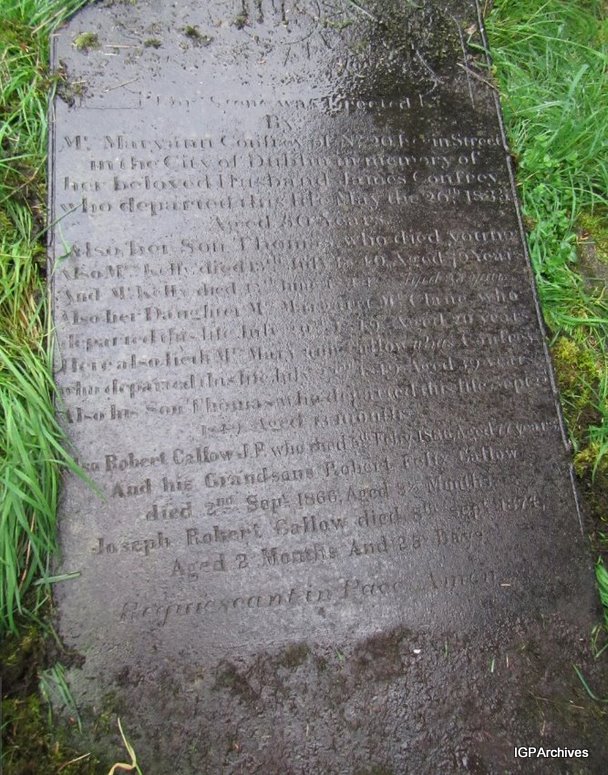 IHS
This Stone was Erected
By
Mrs Maryann Confrey of No 20 Kevin Street
in the City of Dublin in memory of
her beloved Husband James Confrey
who departed this life May the 26th 1833
Aged 40 Years
Also her Son Thomas who died young
Also Mr Kelly died July Aged Years
And Mr Kelly died 13th June
Also her Daughter Mrs Maryann McClane who
departed this life July Aged 20 years
Here also lieth Mrs Mary anne Callow alias Confrey
who departed this life July 1849 Aged 39 years
Also his Son Thomas who departed this life Sept
1849 Aged 13 months
Also Robert Callow J.P. who died Feby 1866 Aged years
And his Grandsons Robert Felix Callow
died 2nd Sept 1866 Aged Months
Joseph Robert Callow died Sept 1874
Aged 2 Months And 23 Days
Requiescant in Pace Amen
IGPArchives